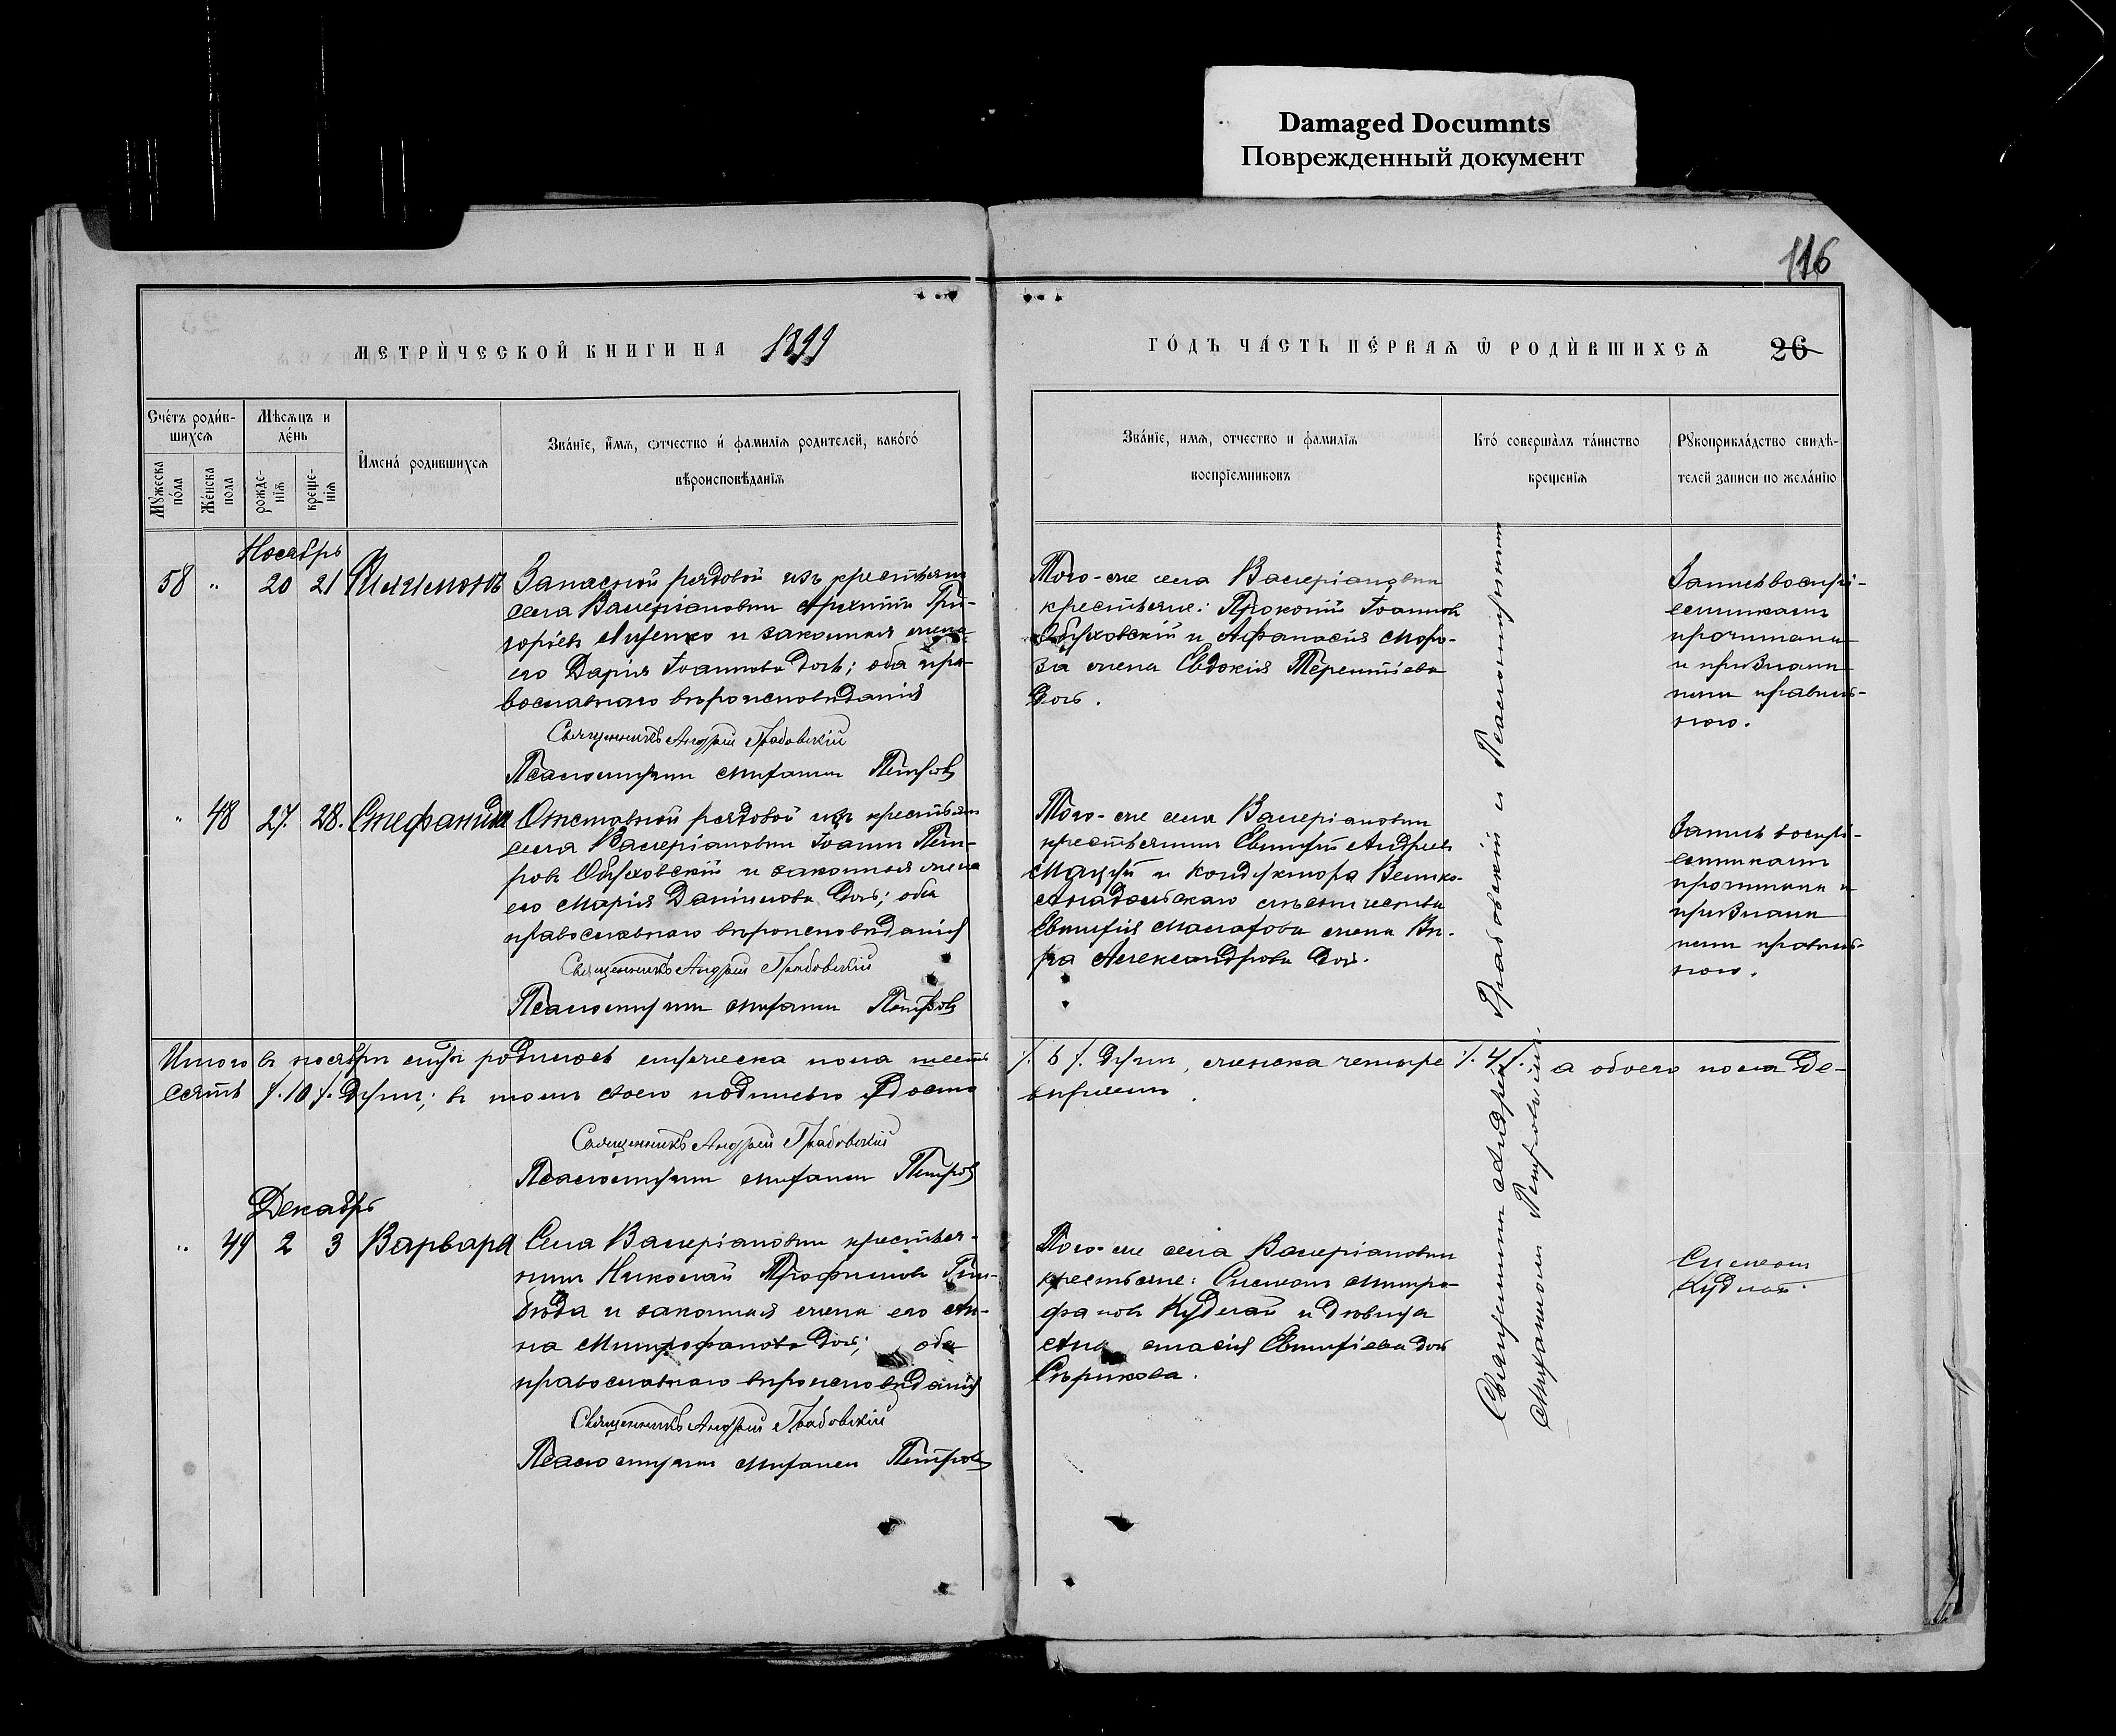 Damaged Documnts
Поврежденный документ
116
МЕТРИ́ЧЕСКОЙ КНИГИ НА 1899
ГО́ДЪ ЧА́СТЬ ПЕ́РВАЯ Ѿ РОДИ́ВШИХСЯ 26
Сче́тъ роди́в-
шихся
Мѣсяцъ и
де́нь
Мꙋжеска
по́ла
Же́нска
пола
рожде-
нія
креще-
нія
Имена́ родившихся
Зва́ніе, и́мя, ѻтчество и́ фамилія родителей, како́го́
вѣроисповѣ́данія
Зва́ніе, имя, отчество и фамилія
воспріемниковъ
Кто́ соверша́лъ та́инство
крещенія
Рꙋкоприкла́дство свидѣ-
телей записи по жела́нію
Ноябрь
58 " 20 21 Филимонъ
Запасной рядовой изъ крестьян
села Валеріановки Архипъ Гри-
горіевъ Луценко и законная жена
его Дарія Іоаннова дочь; оба пра-
вославнаго вѣроисповѣданія
Священникъ Андрей Грабовскій
Псаломщикъ Митрофанъ Петровъ
Того-же села Валеріановки
крестьяне: Прокопій Іоанновъ
Обуховскій и Афанасія Моро-
за жена Евдокія Терентіева
дочь.
Запись воспрі-
емниками
прочитана
и признана
ими правиль-
ною.
" 48 27. 28. Стефанида
Отставной рядовой изъ крестьян
села Валеріановки Іоаннъ Пет-
ровъ Обуховскій и законная жена
его Марія Даніилова дочь; оба
православнаго вѣроисповѣданія
Священникъ Андрей Грабовскій
Того-же села Валеріановки
крестьянинъ Евфимій Андреевъ
и кондуктора Велико-
Анадольскаго лѣсничества
жена Вѣ-
ра Александрова дочь.
Запись воспрі-
емниками
прочитана и
признана
ими правиль-
ною.
Итого въ ноябрѣ родилось мужеска пола шесть
/. 6 /. душъ, женска четыре /. 4 /. а обоего пола де-
сять /. 10 /. душъ; въ чемъ своею подписью удосто
вѣряемъ
Священникъ Андрей Грабовскій
Декабрь
" 49 2 3 Варвара
Села Валеріановки крестья-
нинъ Николай Трофимовъ
и законная жена его Ан-
на Митрофанова дочь; оба
православнаго вѣроисповѣданія
Священникъ Андрей Грабовскій
Того-же села Валеріановки
крестьяне: Симеонъ Митро-
фановъ Кудлай и дѣвица
Анастасія Евфиміева дочь
Сѣрикова.
Симеонъ
Кудлай.
Священникъ Андрей Грабовскій и Псаломщикъ